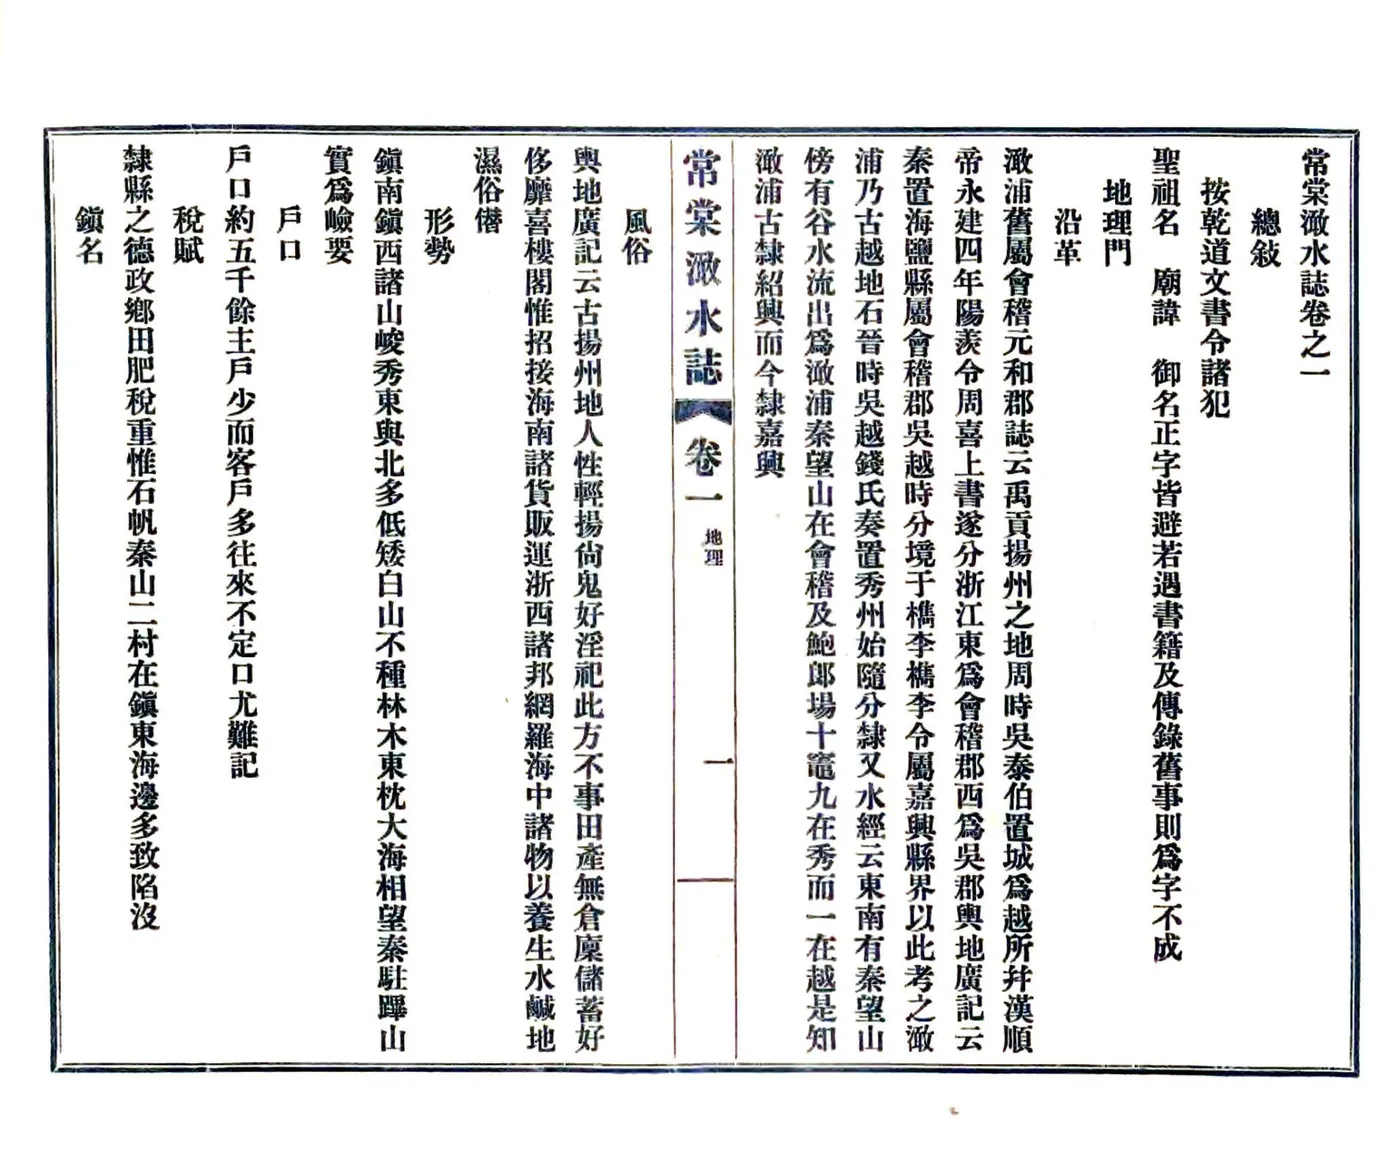 常棠澉水誌卷之一
總敍
按乾道文書令諸犯
聖祖名　廟諱　御名正字皆避若遇書籍及傳錄舊事則爲字不成
地理門
沿革
澉浦舊屬會稽元和郡誌云禹貢揚州之地周時吳泰伯置城爲越所幷漢順
帝永建四年陽羨令周喜上書遂分浙江東爲會稽郡西爲吳郡輿地廣記云
秦置海鹽縣屬會稽郡吳越時分境于檇李檇李今屬嘉興縣界以此考之澉
浦乃古越地石晉時吳越錢氏奏置秀州始隨分隸又水經云東南有秦望山
傍有谷水流出爲澉浦秦望山在會稽及鮑郎場十竈九在秀而一在越是知
澉浦古隸紹興而今隸嘉興
常棠澉水誌　卷一　地理　一
風俗
輿地廣記云古揚州地人性輕揚尙鬼好淫祀此方不事田產無倉廩儲蓄好
侈靡喜樓閣惟招接海南諸貨販運浙西諸邦網羅海中諸物以養生水鹹地
濕俗僭
形勢
鎭南鎭西諸山峻秀東與北多低矮白山不種林木東枕大海相望秦駐蹕山
實爲嶮要
戶口
戶口約五千餘主戶少而客戶多往來不定口尤難記
稅賦
隸縣之德政鄕田肥稅重惟石帆秦山二村在鎭東海邊多致陷沒
鎭名